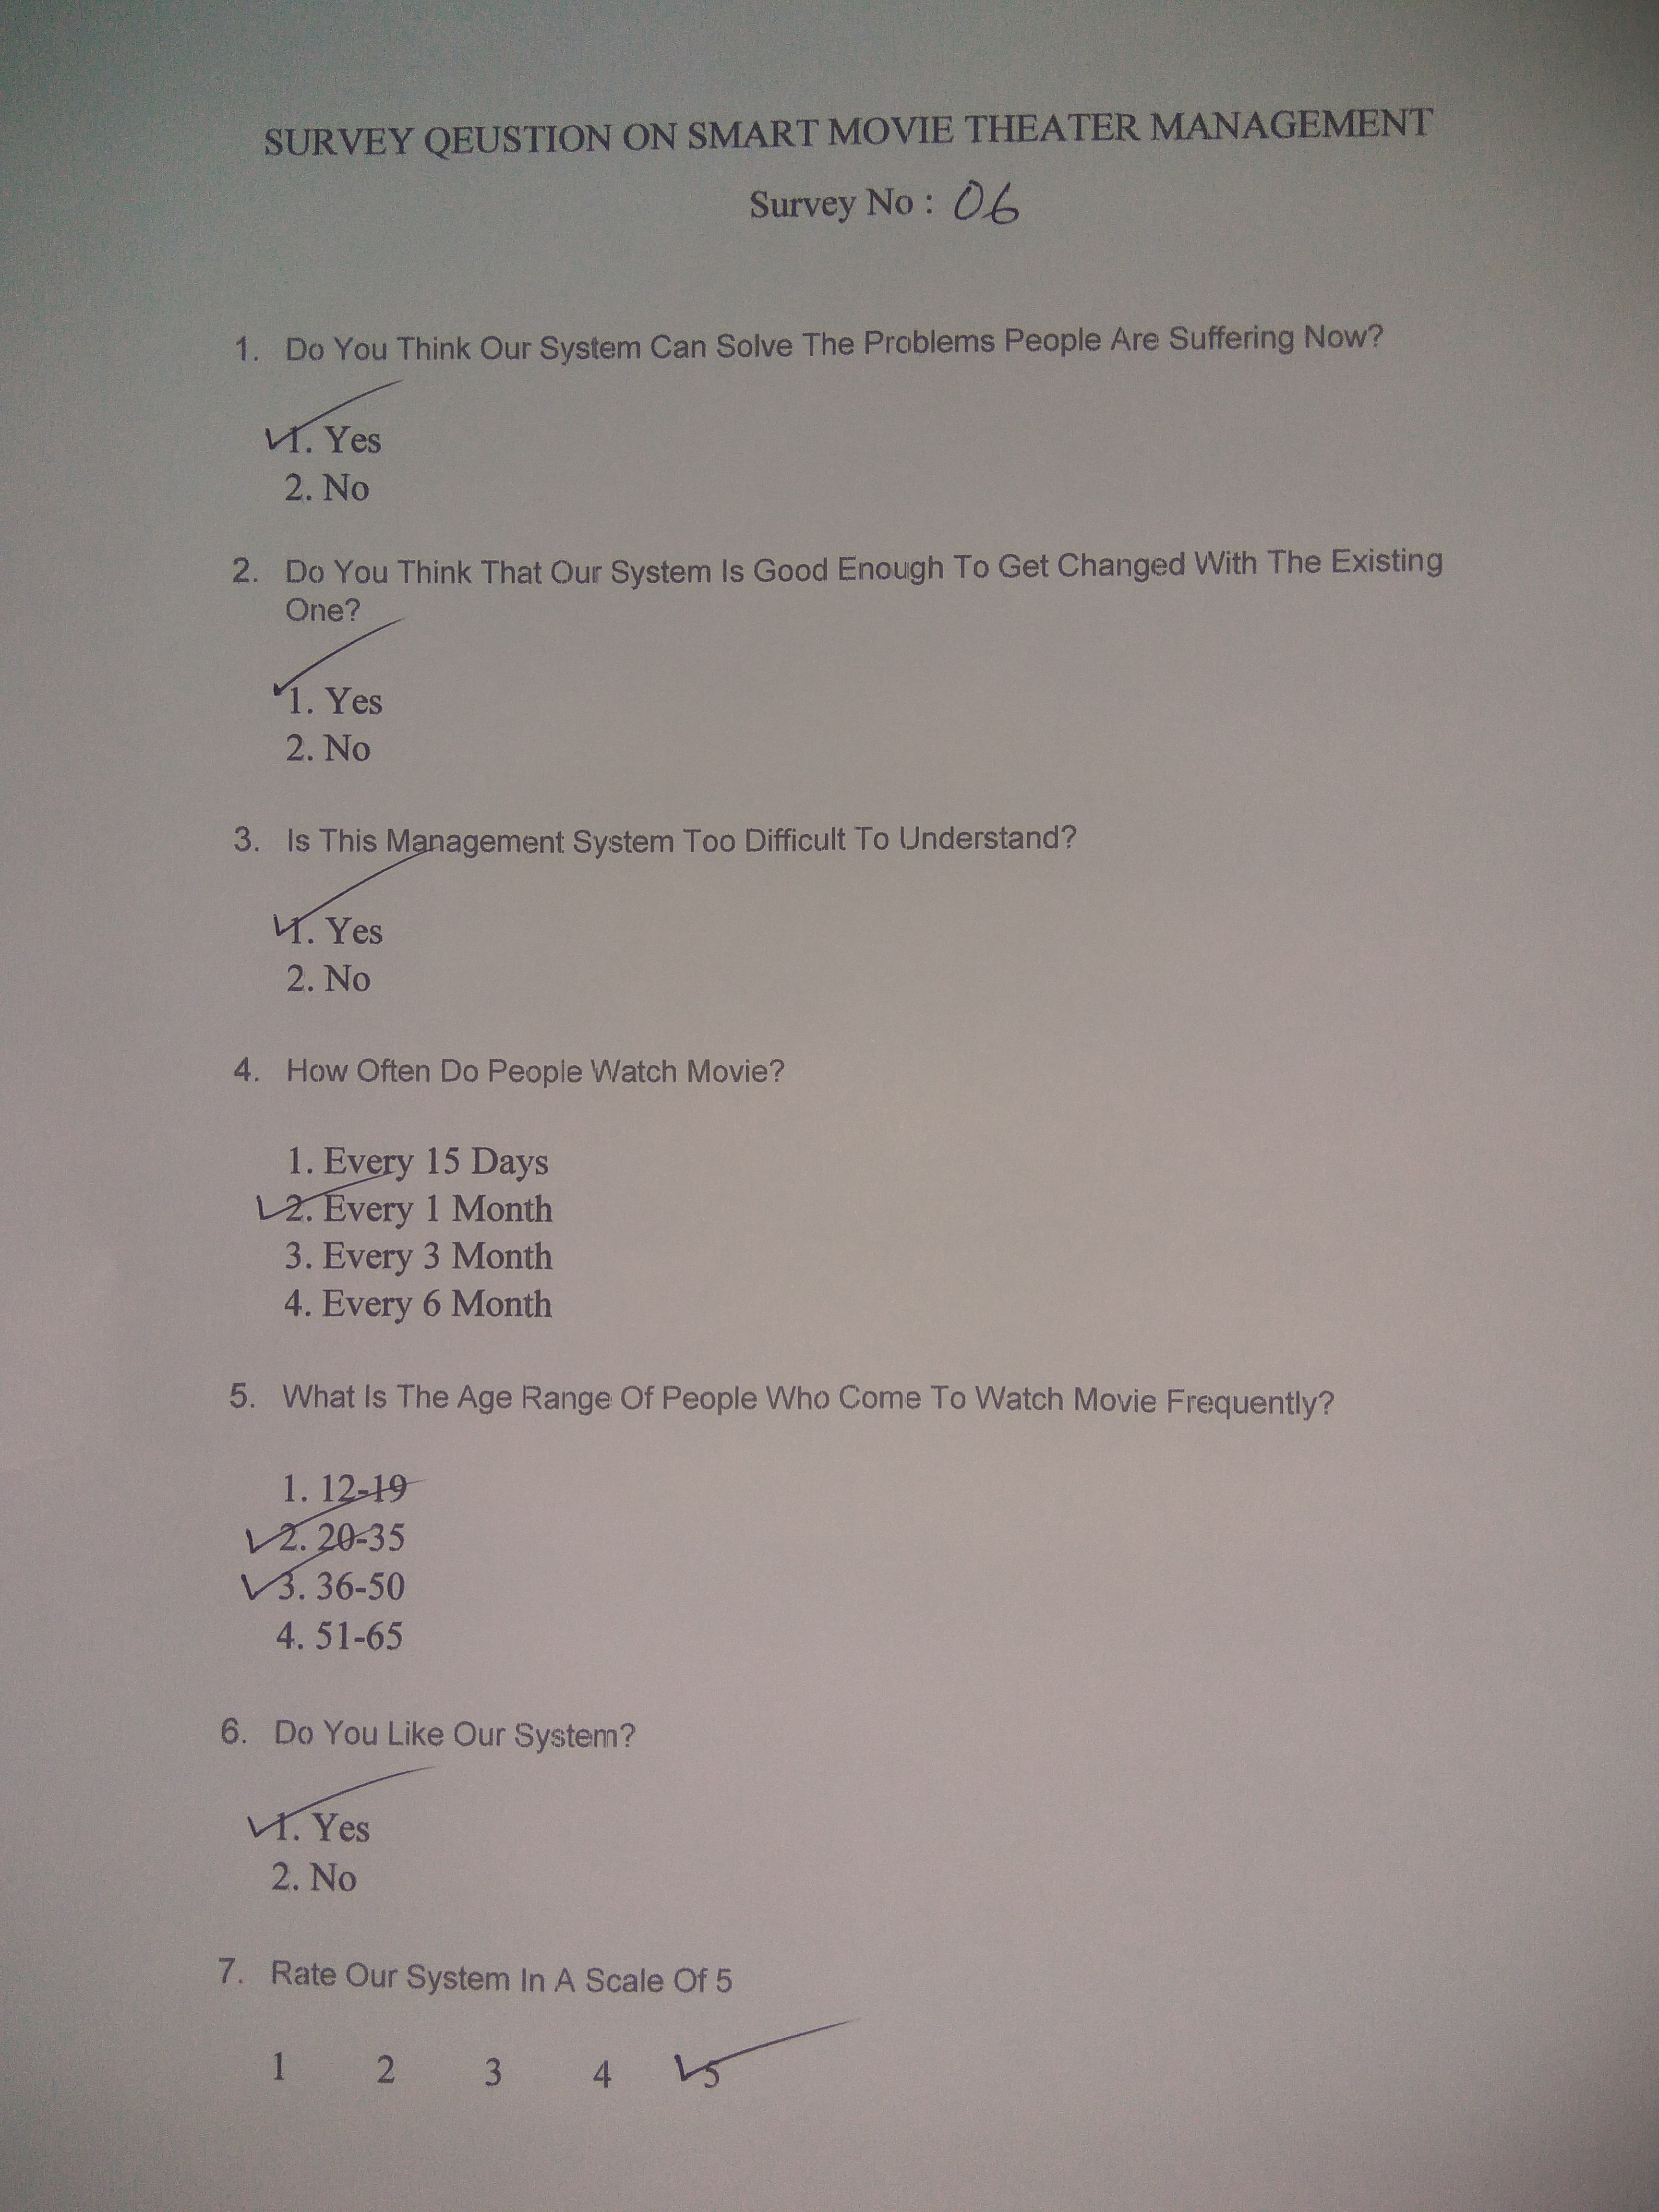 SURVEY QEUSTION ON SMART MOVIE THEATER MANAGEMENT
Survey No : 06
1. Do You Think Our System Can Solve The Problems People Are Suffering Now?
1. Yes
2. No
2. Do You Think That Our System Is Good Enough To Get Changed With The Existing
One?
1. Yes
2. No
3. Is This Management System Too Difficult To Understand?
1. Yes
2. No
4. How Often Do People Watch Movie?
1. Every 15 Days
2. Every 1 Month
3. Every 3 Month
4. Every 6 Month
5. What Is The Age Range Of People Who Come To Watch Movie Frequently?
1. 12-19
2. 20-35
3. 36-50
4. 51-65
6. Do You Like Our System?
1. Yes
2. No
7. Rate Our System In A Scale Of 5
1 2 3 4 5